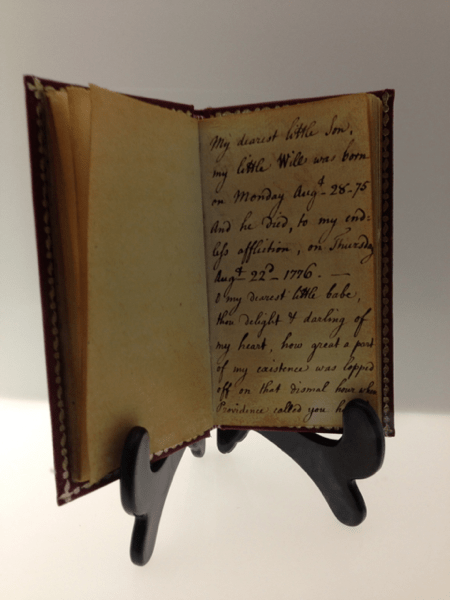 My dearest little Son,
my little Will was born
on Monday Augt. 28-75
And he died, to my end=
less affliction, on Thursday
Augt 22d 1776. —
O my dearest little babe,
thou delight & darling of
my heart, how great a part
of my existence was lopped
off on that dismal hour when
Providence called you